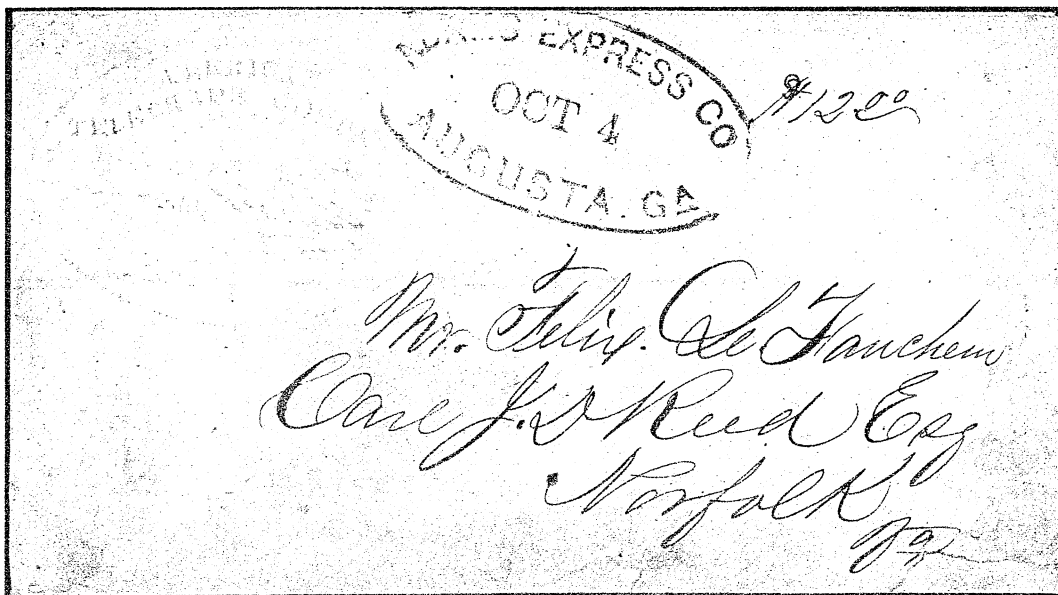 ADAMS EXPRESS CO
OCT 4
AUGUSTA. GA
$12 00
Mr. Felix. De Fauchem
Care J. D Reed Esq
Norfolk
Va